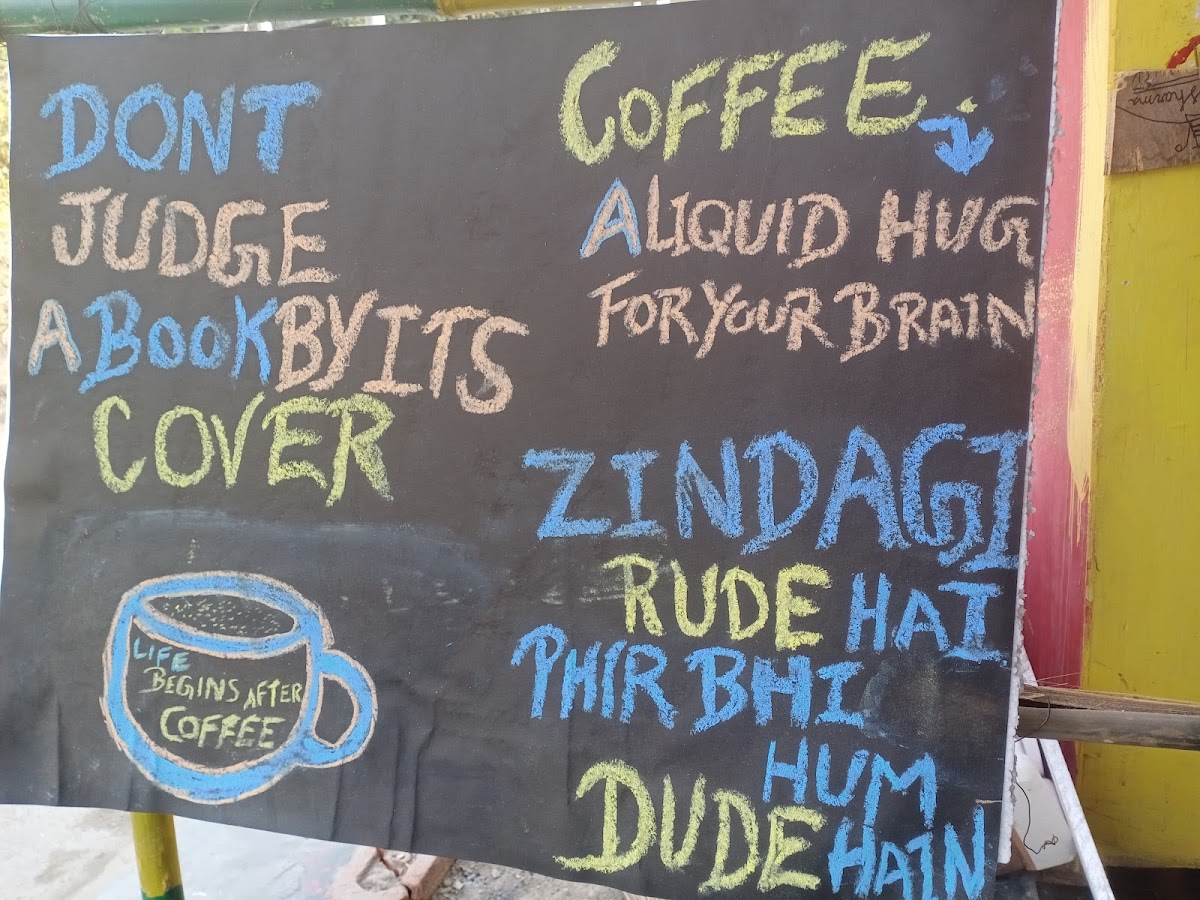 DONT
JUDGE
A BOOK BY ITS
COVER
COFFEE.
A LIQUID HUG
FOR YOUR BRAIN
ZINDAGI
RUDE HAI
PHIR BHI
HUM
DUDE HAIN
LIFE
BEGINS AFTER
COFFEE
Sharma